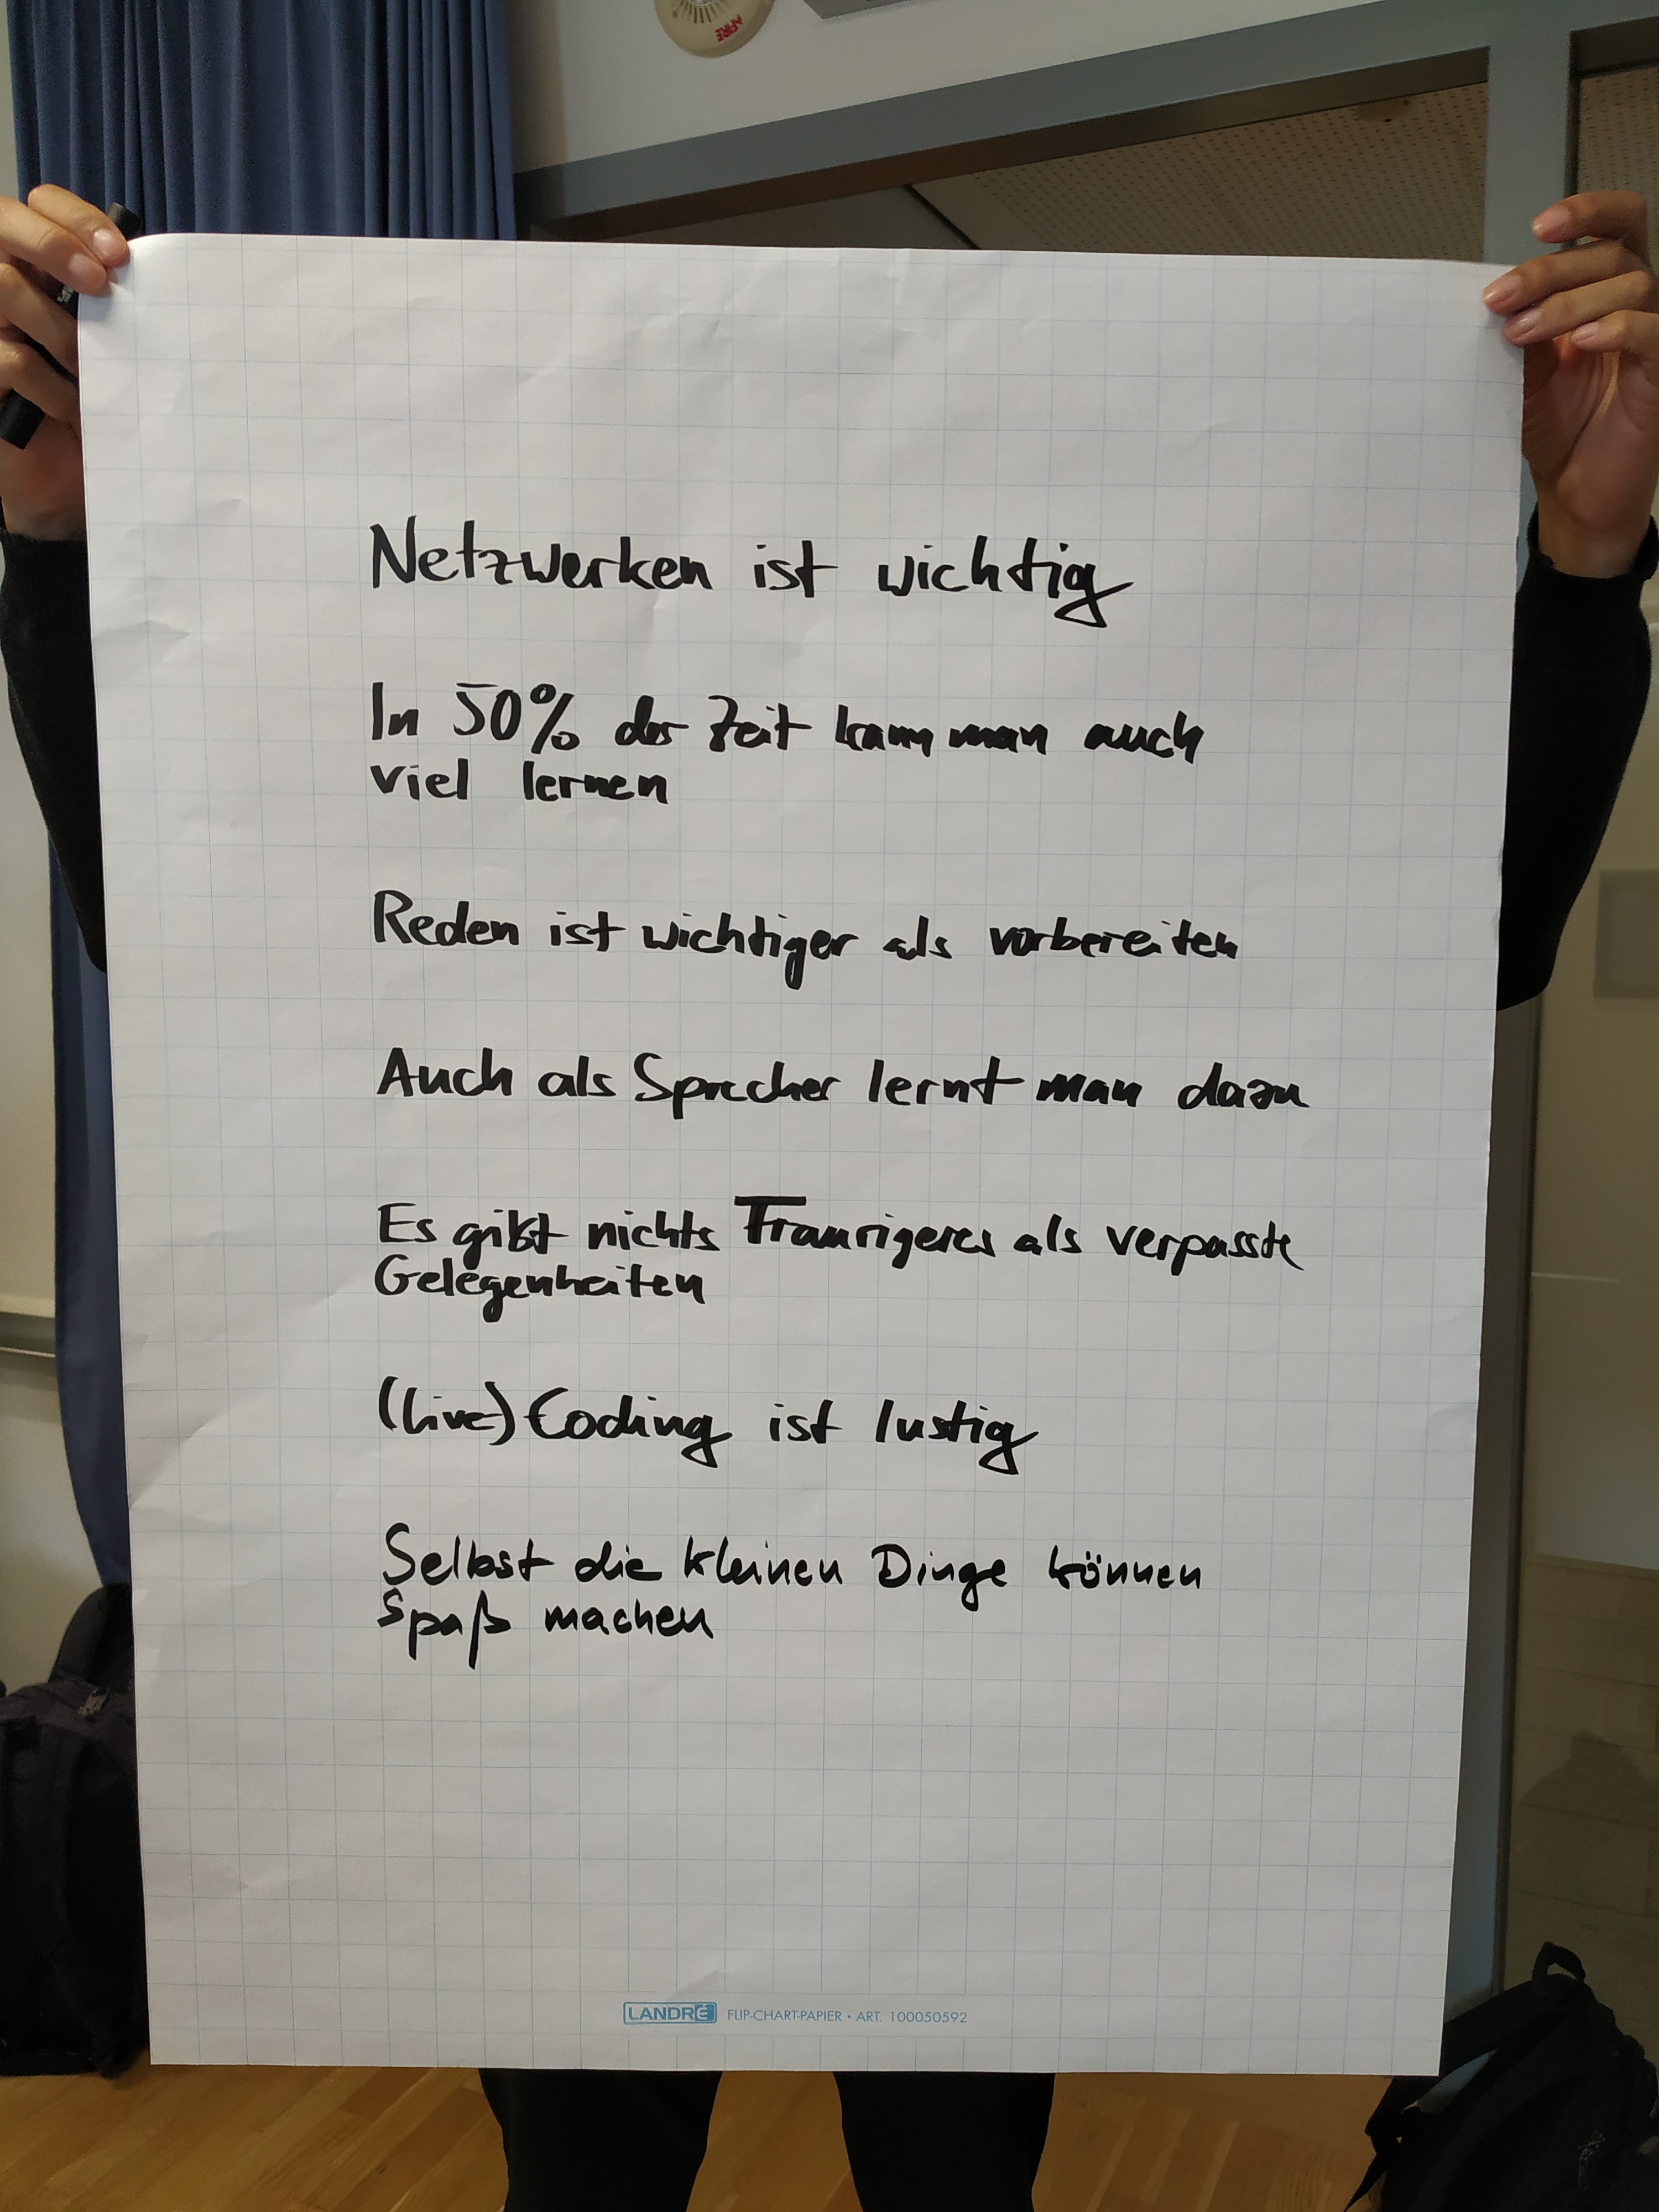 AFIRE
Netzwerken ist wichtig
In 50% der Zeit kann man auch
viel lernen
Reden ist wichtiger als vorbereiten
Auch als Sprecher lernt man dazu
Es gibt nichts Traurigeres als verpasste
Gelegenheiten
(Live) Coding ist lustig
Selbst die kleinen Dinge können
Spaß machen
LANDRÉ FLIP-CHART-PAPIER • ART. 100050592